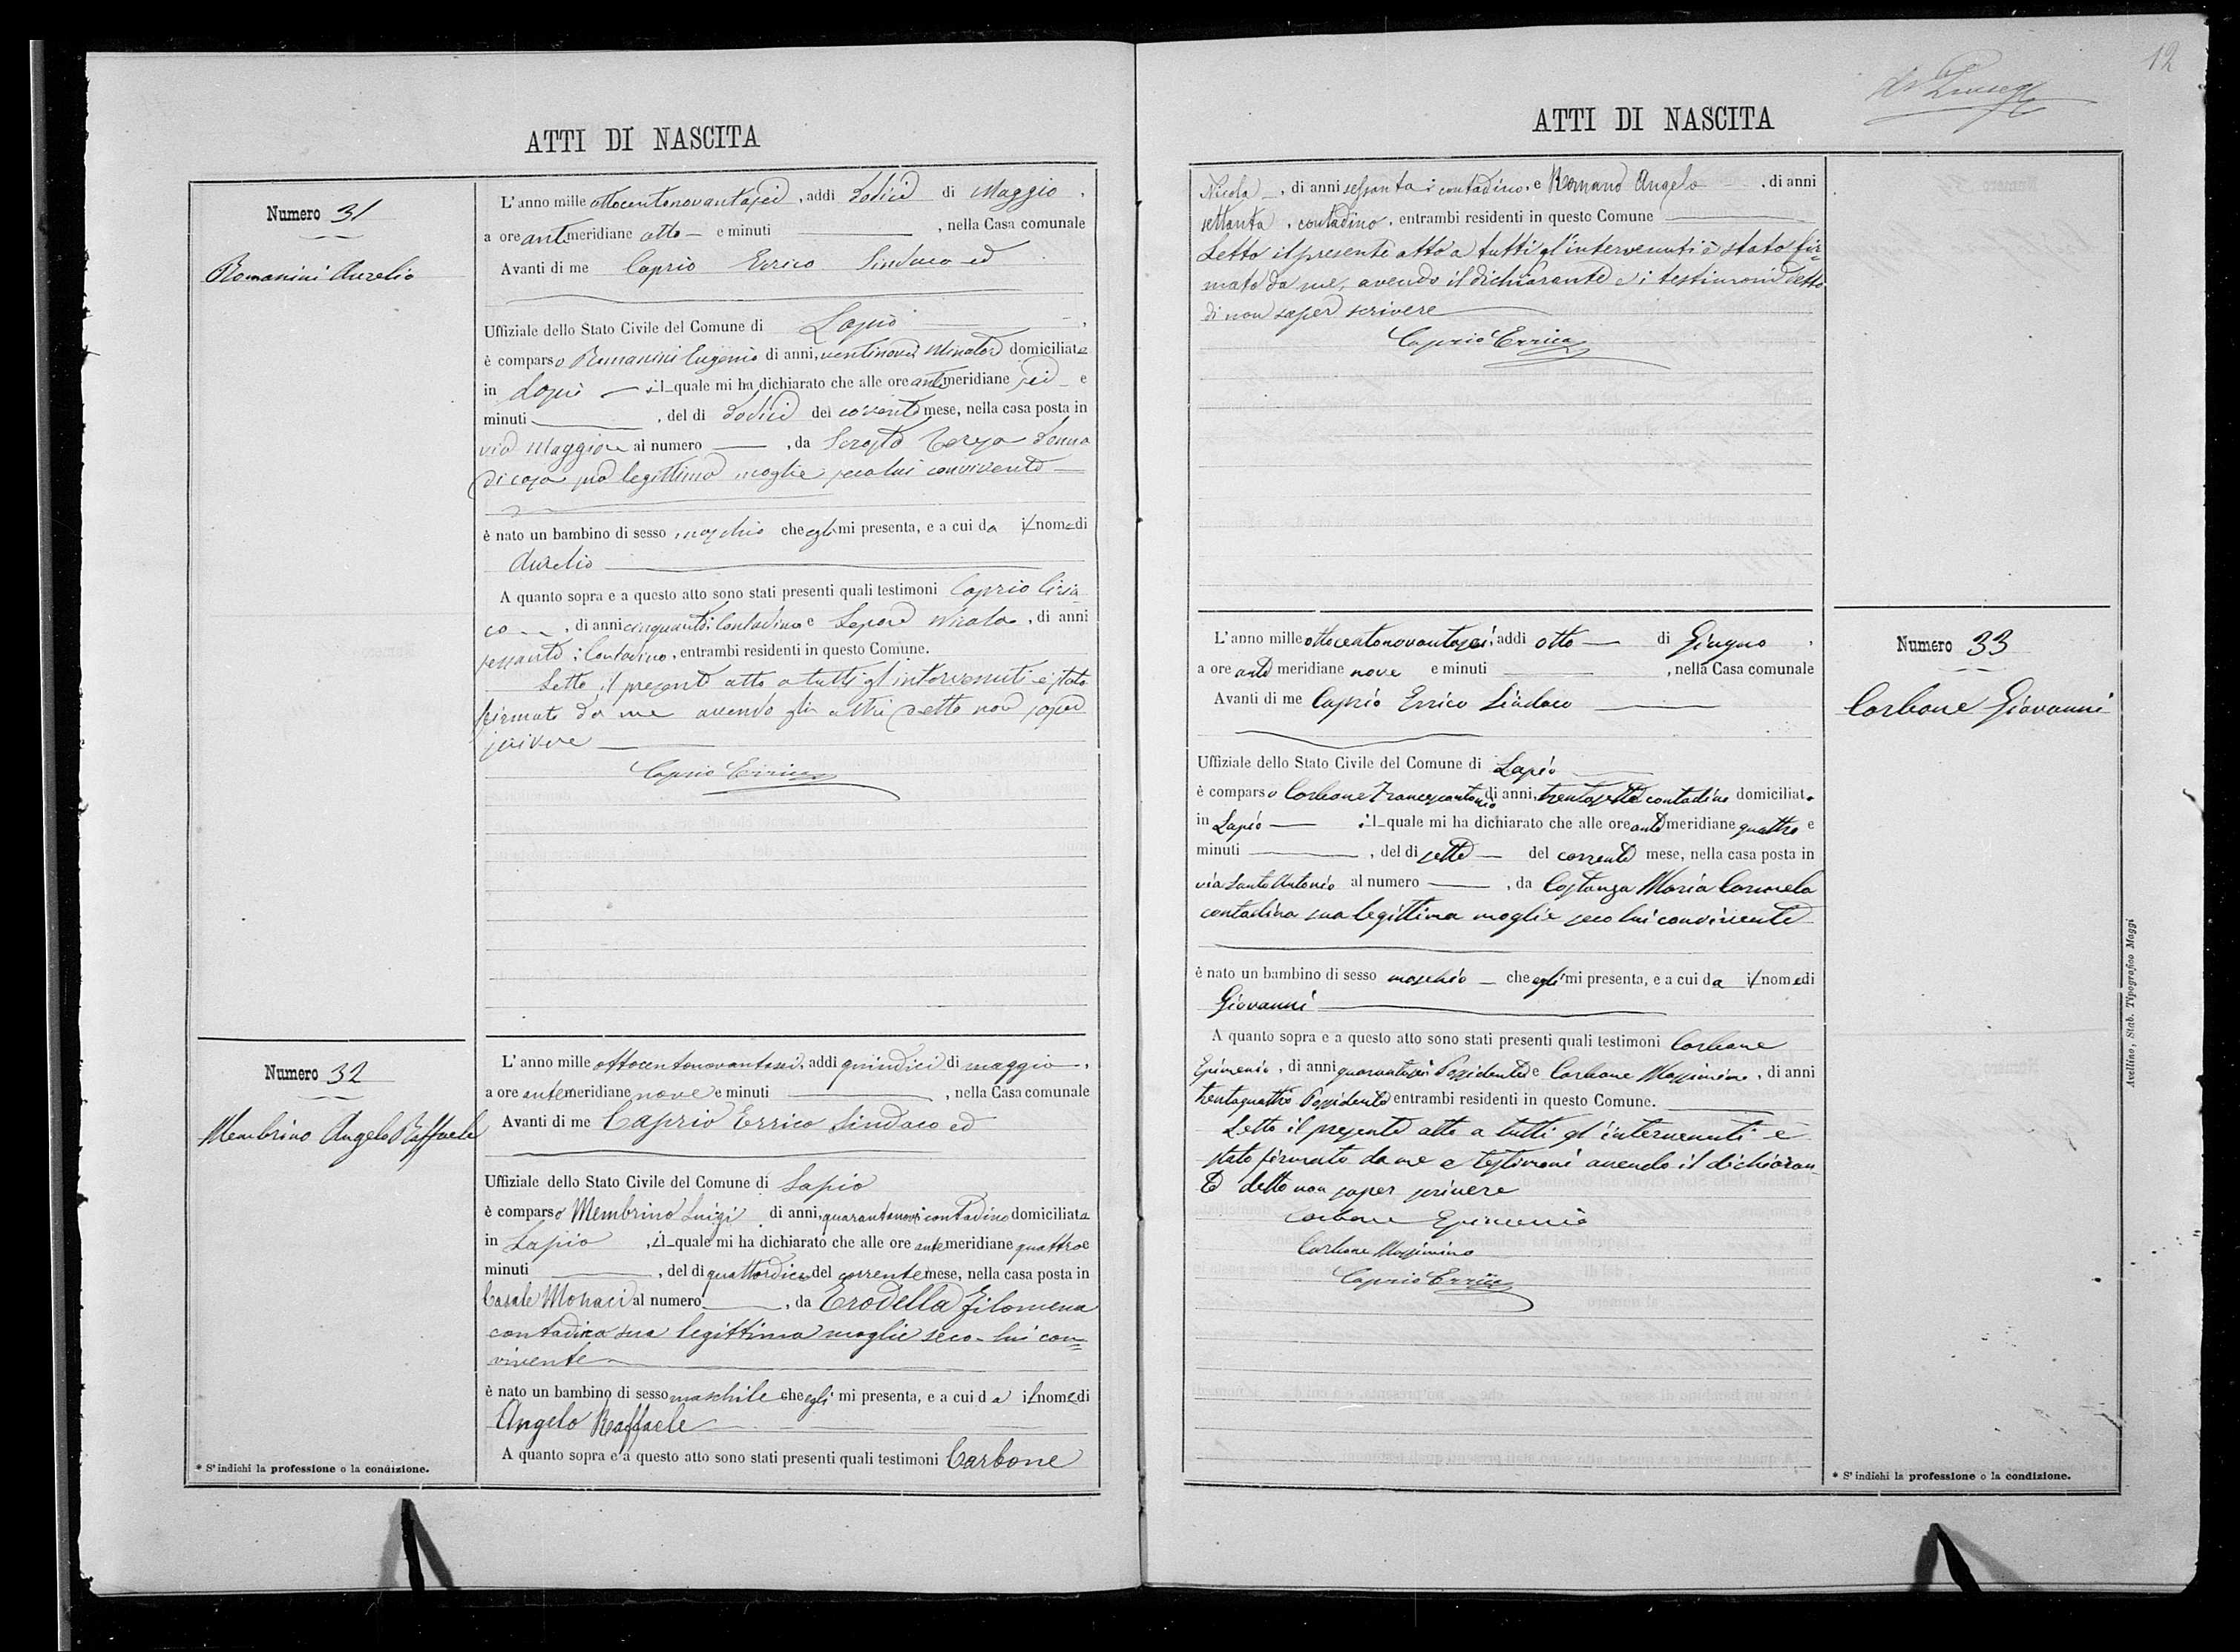 12
ATTI DI NASCITA
Numero 31
Romanini Aurelio
L'anno mille ottocentonovantasei, addi dodici di Maggio,
a ore antimeridiane otto — e minuti — , nella Casa comunale
Avanti di me Caprio Errico Sindaco ed
Uffiziale dello Stato Civile del Comune di Lapio
è comparso Romanini Eugenio di anni, ventinove Minatore domiciliato
in Lapio — il quale mi ha dichiarato che alle ore antimeridiane sei e
minuti — , del dì dodici del corrente mese, nella casa posta in
via Maggiore al numero — , da Teresa donna
di casa sua legittima moglie seco lui convivente —
è nato un bambino di sesso maschio che egli mi presenta, e a cui da il nome di
Aurelio
A quanto sopra e a questo atto sono stati presenti quali testimoni Caprio Ciria
co — , di anni cinquanta, Contadino e Lepore Nicola, di anni
sessanta, Contadino, entrambi residenti in questo Comune.
Letto il presente atto a tutti gl'intervenuti è stato
firmato da me avendo gli altri detto non saper
scrivere —
Caprio Errico
Numero 32
Membrino Angelo Raffaele
L'anno mille ottocentonovantasei, addi quindici di maggio,
a ore antemeridiane nove e minuti — , nella Casa comunale
Avanti di me Caprio Errico Sindaco ed
Uffiziale dello Stato Civile del Comune di Lapio
è comparso Membrino Luigi di anni, quarantanove contadino domiciliato
in Lapio , il quale mi ha dichiarato che alle ore antemeridiane quattro e
minuti — , del dì quattordici del corrente mese, nella casa posta in
Casale Monaci al numero — , da Erodella Filomena
contadina sua legittima moglie seco-lui con=
vivente
è nato un bambino di sesso maschile che egli mi presenta, e a cui da il nome di
Angelo Raffaele
A quanto sopra e a questo atto sono stati presenti quali testimoni Carbone
* S'indichi la professione o la condizione.
ATTI DI NASCITA
Nicola —, di anni sessanta, contadino, e Romano Angelo —, di anni
settanta, contadino, entrambi residenti in questo Comune
Letto il presente atto a tutti gl'intervenuti è stato fir=
mato da me, avendo il dichiarante e i testimoni detto
di non saper scrivere
Caprio Errico
Numero 33
Carbone Giovanni
L'anno mille ottocentonovantasei, addi otto — di Giugno,
a ore ante meridiane nove e minuti — , nella Casa comunale
Avanti di me Caprio Errico Sindaco
Uffiziale dello Stato Civile del Comune di Lapio
è comparso Carbone Francescantonio di anni, trentasette contadino domiciliato
in Lapio — il quale mi ha dichiarato che alle ore antemeridiane quattro e
minuti — , del dì sette — del corrente mese, nella casa posta in
via Santo Antonio al numero — , da Costanza Maria Carmela
contadina sua legittima moglie seco lui convivente
è nato un bambino di sesso maschio — che egli mi presenta, e a cui da il nome di
Giovanni
A quanto sopra e a questo atto sono stati presenti quali testimoni Carbone
Epimenio, di anni quarantasei Possidente e Carbone Massimino, di anni
trentaquattro Possidente entrambi residenti in questo Comune.
Letto il presente atto a tutti gl'intervenuti è
stato firmato da me e testimoni avendo il dichiaran
te detto non saper scrivere
Carbone Epimenio
Carbone Massimino
Caprio Errico
* S'indichi la professione o la condizione.
Avellino, Stab. Tipografico Maggi